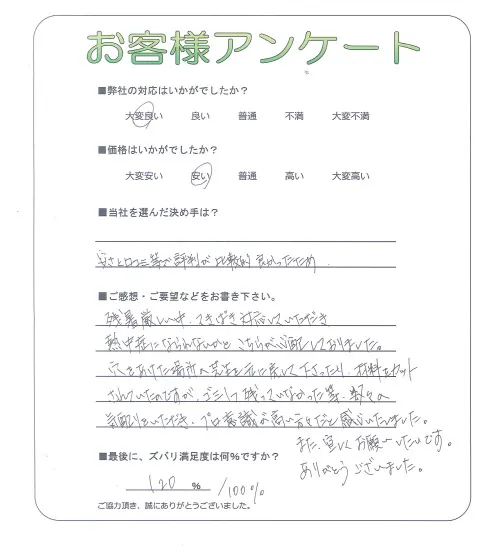 お客様アンケート
■弊社の対応はいかがでしたか？
大変良い 良い 普通 不満 大変不満
■価格はいかがでしたか？
大変安い 安い 普通 高い 大変高い
■当社を選んだ決め手は？
安さと口コミ等の評判が比較的良かったため.
■ご感想・ご要望などをお書き下さい。
残暑厳しい中、てきぱき対応していただき
熱中症にならないかとこちらが心配しておりました。
穴をあけた場所の芝生を元に戻して下さったり、材料をカット
されていたのですが、ゴミ1つ残っていなかった等、数々の
気配りをいただき、プロ意識が高い方々だと感じいたしました。
また、宜しくお願いしたいです。
ありがとうございました。
■最後に、ズバリ満足度は何%ですか？
120 % /100%
ご協力頂き、誠にありがとうございました。